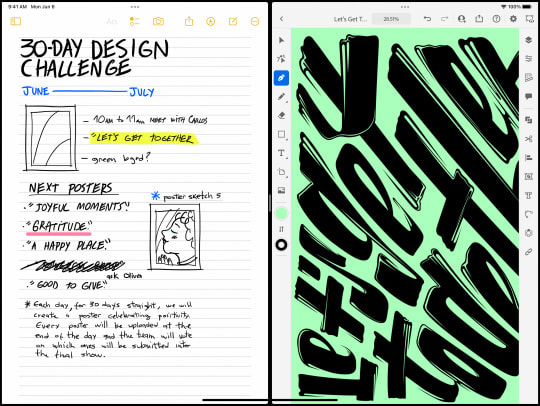 9:41 AM Mon Jun 6
100%
Aa
30-DAY DESIGN
CHALLENGE
JUNE JULY
- 10AM to 11AM MEET WITH CARLOS
- "LET'S GET TOGETHER
- green bgrd?
NEXT POSTERS
· "JOYFUL MOMENTS"
· "GRATITUDE"
· "A HAPPY PLACE"
ask Olivia
· "GOOD TO GIVE"
* poster sketch 5
* Each day, for 30 days straight, we will
create a poster celebrating positivity.
Every poster will be uploaded at the
end of the day and the team will vote
on which ones will be submitted into
the final show.
Let's Get T...
28.51%
Let's Get
Together